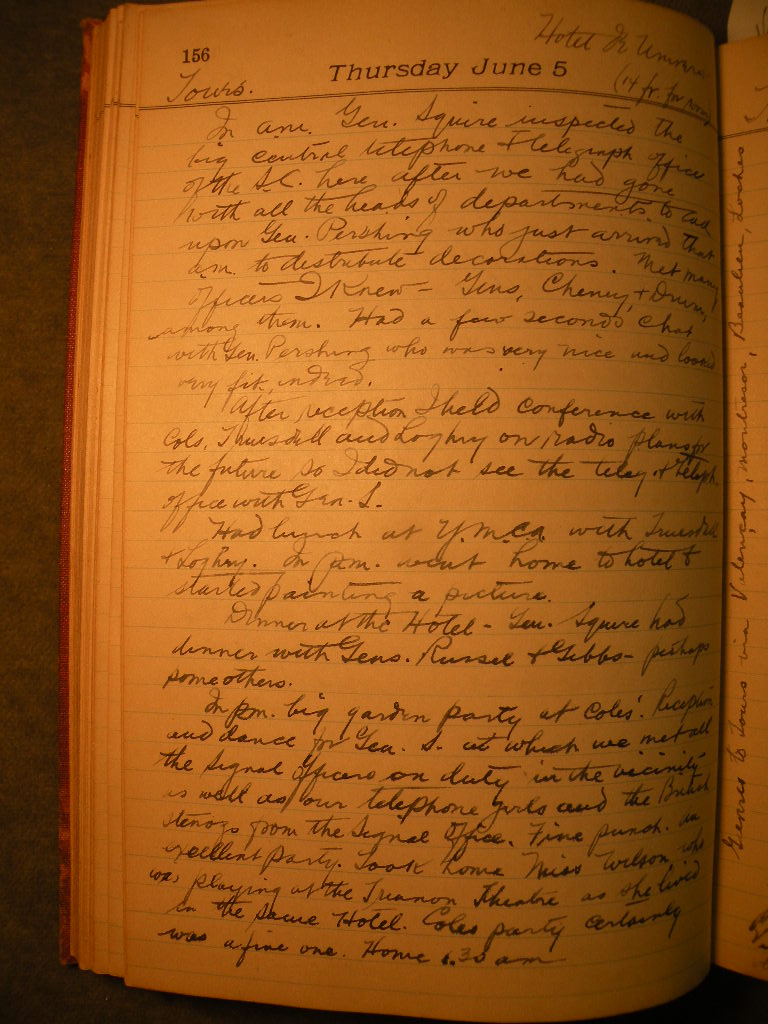 156
Hotel de Univers
Thursday June 5
Tours.
(14 fr. for room)
In am. Gen. Squire inspected the
big central telephone & telegraph office
of the S.C. here after we had gone
with all the heads of departments, to call
upon Gen. Pershing who just arrived that
am. to distribute decorations. Met many
officers I knew – Gens, Cheney, & Drum,
among them. Had a few seconds chat
with Gen. Pershing who was very nice and looked
very fit, indeed.
After reception I held conference with
Cols, Truesdell and Loghry on radio plans for
the future so I did not see the teleg. & teleph.
office with Gen. S.
Had lunch at Y.M.C.A. with Truesdell
& Loghry. In pm. went home to hotel &
started painting a picture.
Dinner at the Hotel – Gen. Squire had
dinner with Gens. Russel & Gibbs – perhaps
some others.
In pm. big garden party at Coles'. Reception
and dance for Gen. S. at which we met all
the Signal Officers on duty in the vicinity
as well as our telephone girls and the British
stenogs from the Signal Office. Fine punch. an
excellent party. Took home Miss Wilson, who
was playing at the Trianon Theatre as she lived
in the same Hotel. Coles party certainly
was a fine one. Home 1.30 am
Gievres to Tours via Valencay, Montresor, Beaulieu, Loches